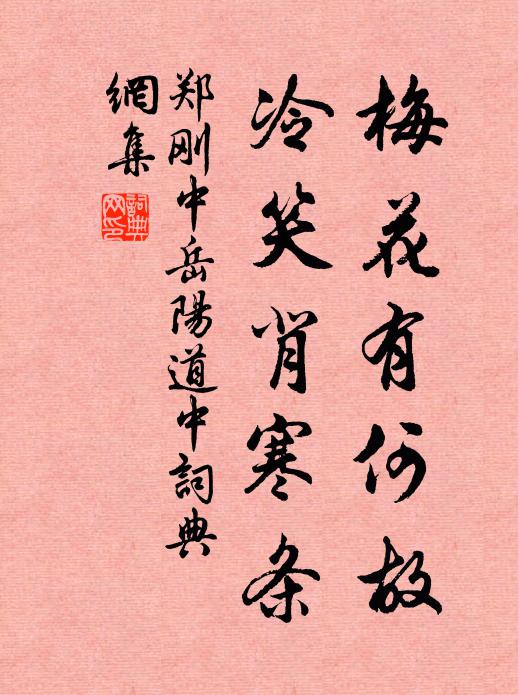 梅花有何故
冷笑背寒条
郑刚中岳陽道中詞典
網集
詞典
网印